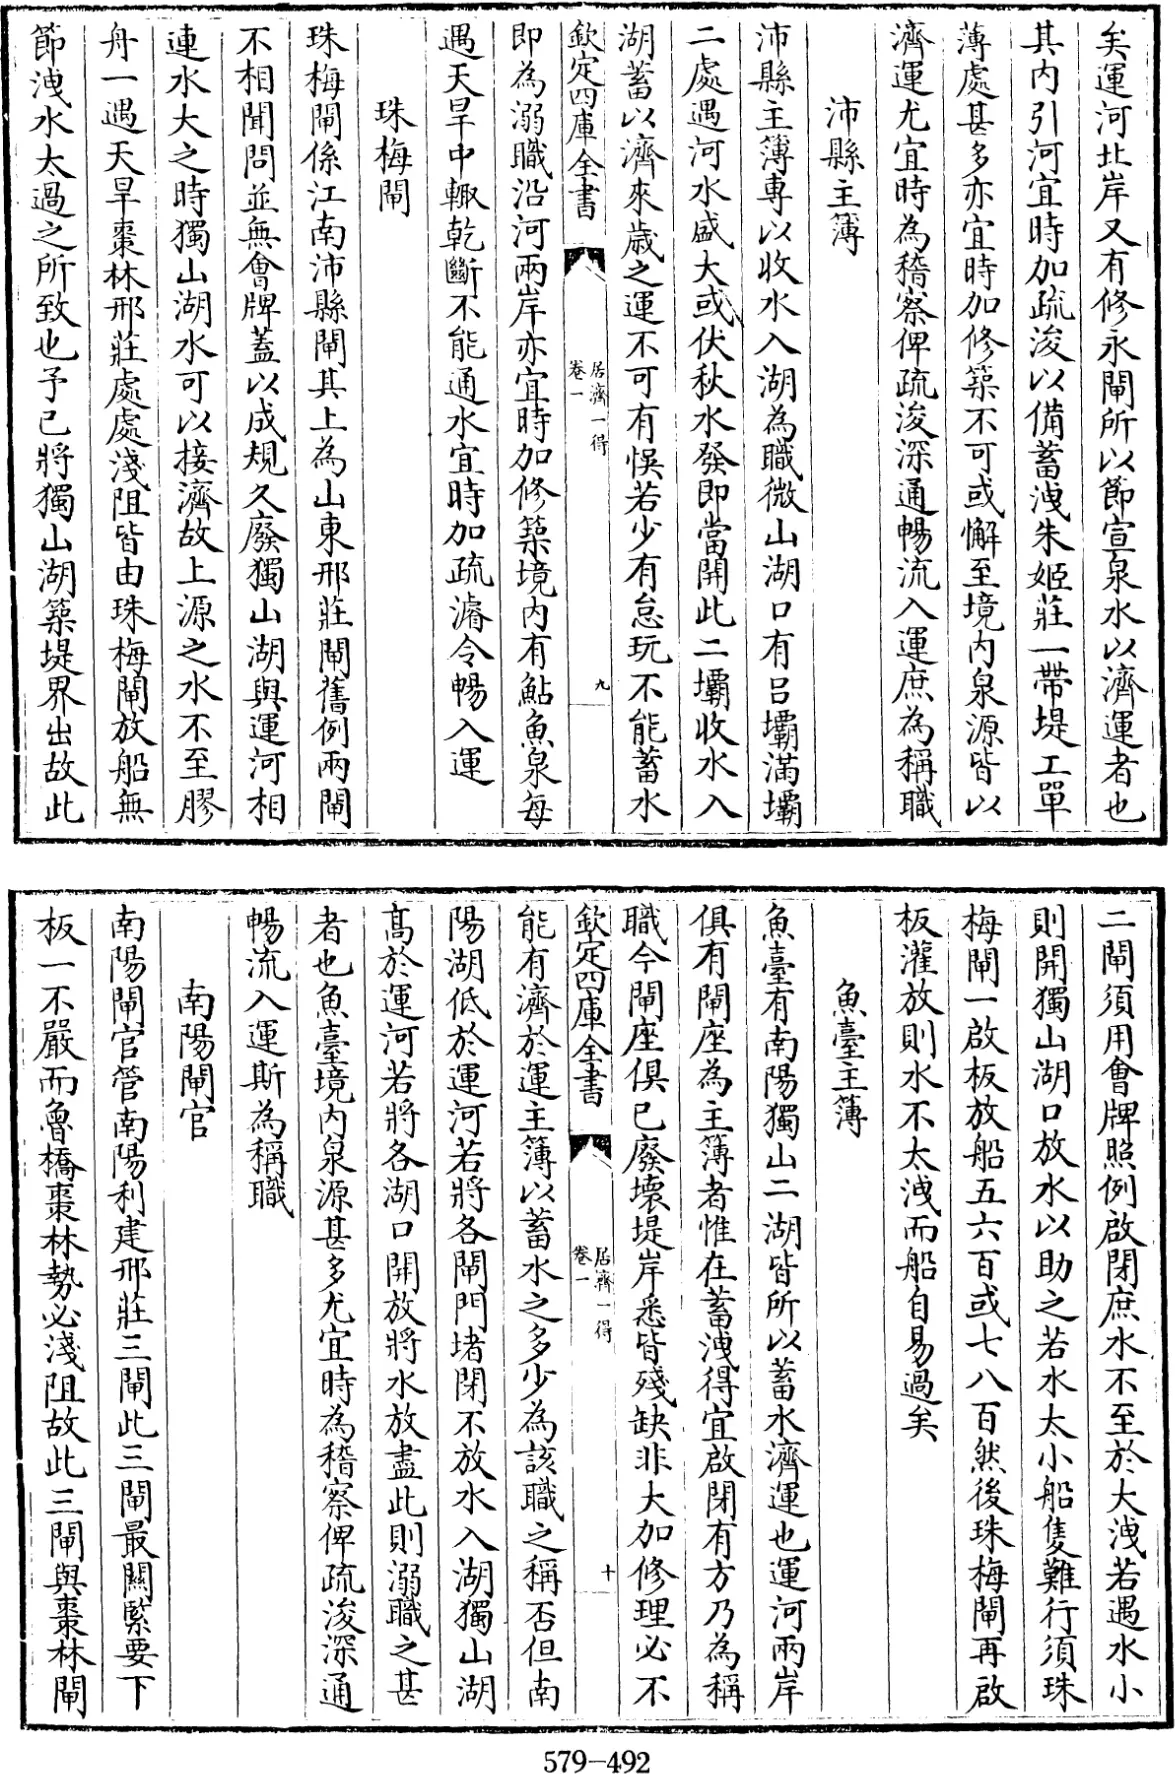 矣運河北岸又有修永閘所以節宣泉水以濟運者也
其内引河宜時加疏浚以備蓄洩朱姬莊一帶堤工單
薄處甚多亦宜時加修築不可或懈至境内泉源皆以
濟運尤宜時為稽察俾疏浚深通暢流入運庶為稱職
沛縣主簿
沛縣主簿專以收水入湖為職微山湖口有吕壩滿壩
二處遇河水盛大或伏秋水發即當開此二壩收水入
湖蓄以濟來歲之運不可有悞若少有怠玩不能蓄水
欽定四庫全書
居濟一得
卷一
九
即為溺職沿河兩岸亦宜時加修築境内有鮎魚泉每
遇天旱中輙乾斷不能通水宜時加疏濬令暢入運
珠梅閘
珠梅閘係江南沛縣閘其上為山東邢莊閘舊例兩閘
不相聞問並無會牌蓋以成規久廢獨山湖與運河相
連水大之時獨山湖水可以接濟故上源之水不至膠
舟一遇天旱棗林邢莊處處淺阻皆由珠梅閘放船無
節洩水太過之所致也予已將獨山湖築堤界出故此
二閘須用會牌照例啟閉庶水不至於大洩若遇水小
則開獨山湖口放水以助之若水太小船隻難行須珠
梅閘一啟板放船五六百或七八百然後珠梅閘再啟
板灌放則水不太洩而船自易過矣
魚臺主簿
魚臺有南陽獨山二湖皆所以蓄水濟運也運河兩岸
俱有閘座為主簿者惟在蓄洩得宜啟閉有方乃為稱
職今閘座俱已廢壞堤岸悉皆殘缺非大加修理必不
欽定四庫全書
居濟一得
卷一
十
能有濟於運主簿以蓄水之多少為該職之稱否但南
陽湖低於運河若將各閘門堵閉不放水入湖獨山湖
髙於運河若將各湖口開放將水放盡此則溺職之甚
者也魚臺境内泉源甚多尤宜時為稽察俾疏浚深通
暢流入運斯為稱職
南陽閘官
南陽閘官管南陽利建邢莊三閘此三閘最闗緊要下
板一不嚴而魯橋棗林勢必淺阻故此三閘與棗林閘
579-492